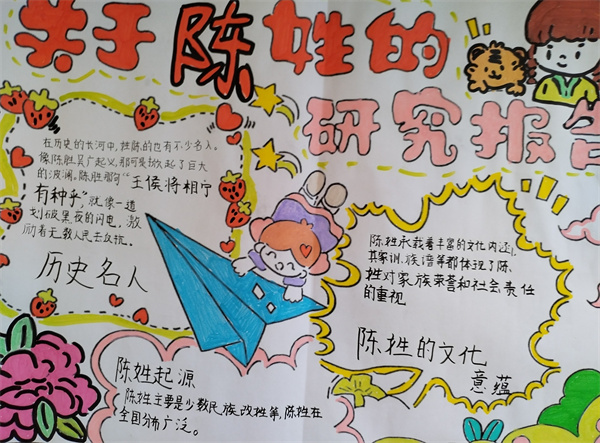 关于陈姓的
研究报告
在历史的长河中，姓陈的也有不少名人。
像陈胜吴广起义，那可是掀起了巨大
的波澜。陈胜那句“王侯将相宁
有种乎”，就像一道
划破黑夜的闪电，激
励着无数人民去反抗。
历史名人
陈姓承载着丰富的文化内涵。
其家训、族谱等都体现了陈
姓对家族荣誉和社会责任
的重视
陈姓的文化
意蕴
陈姓起源
陈姓主要是少数民族改姓等，陈姓在
全国分布广泛。